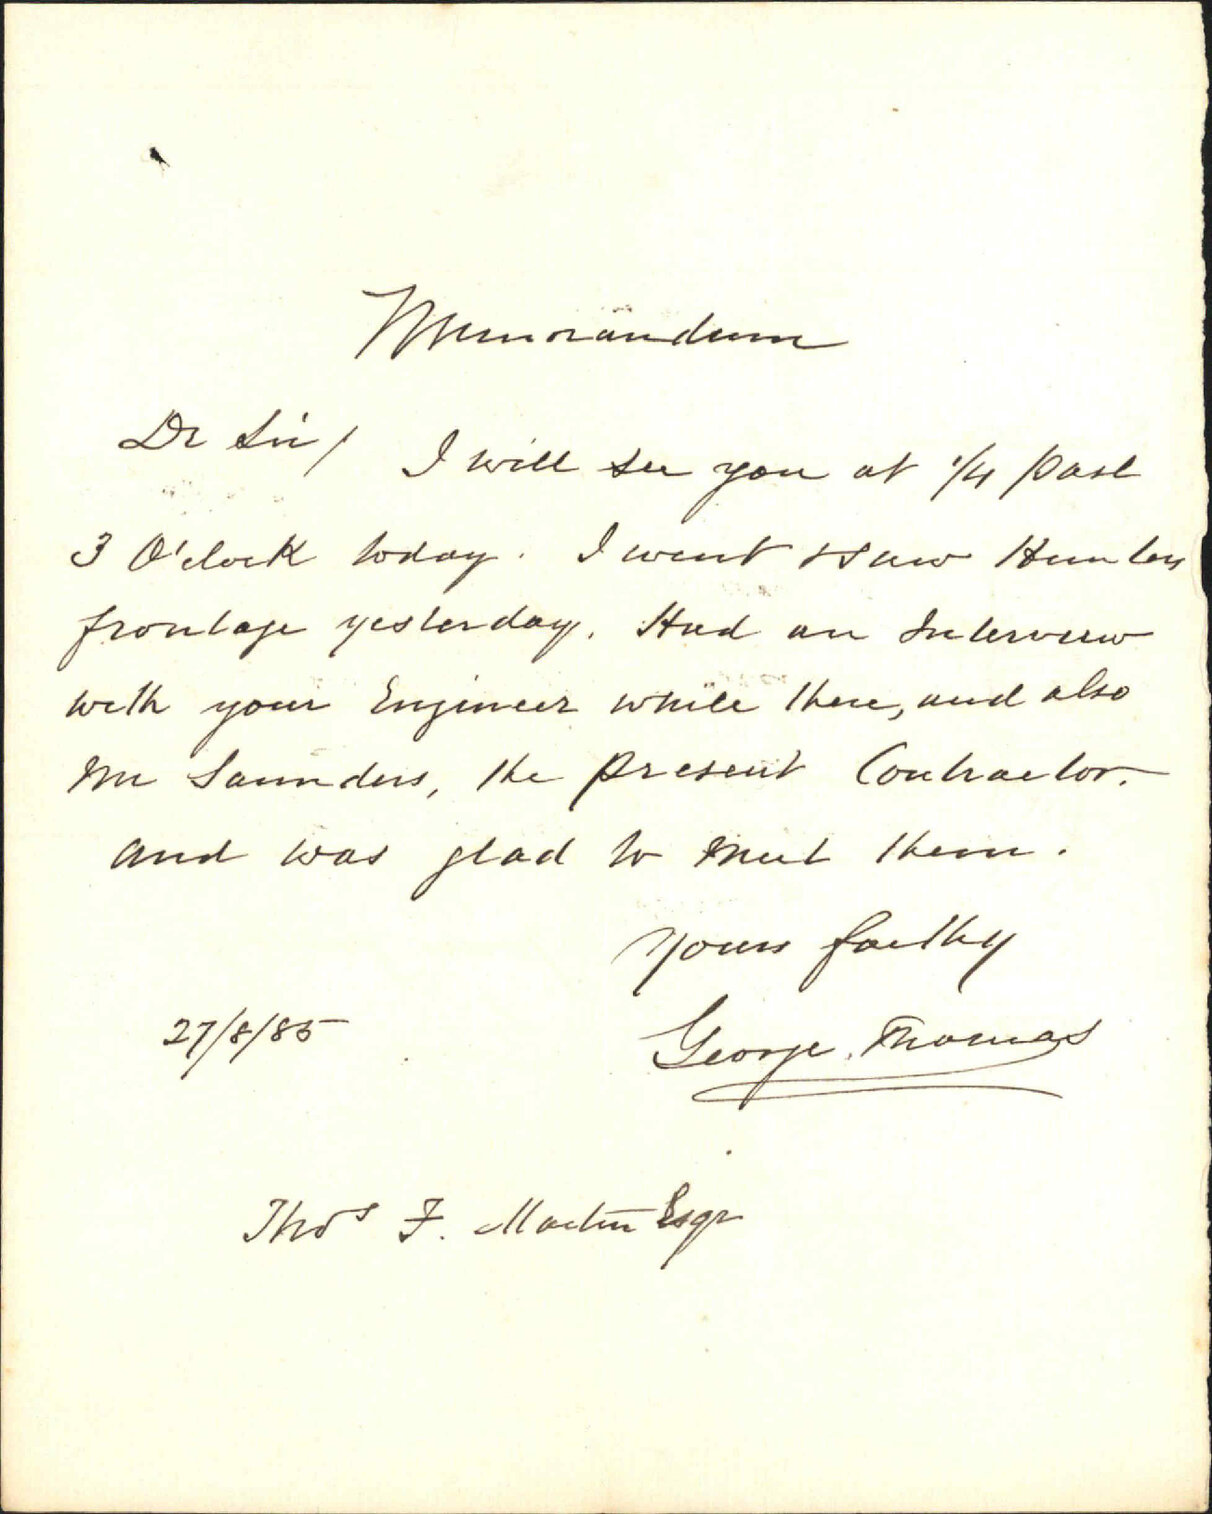 Memorandum
Dr Sir/ I will see you at 1/4 past
3 O'clock today. I went & saw Hunters
frontage yesterday. Had an Interview
with your Engineer while there, and also
Mr Saunders, the present Contractor.
and was glad to meet them.
Yours faithy
27/8/85
George Thomas
Thos F. Martin Esqr